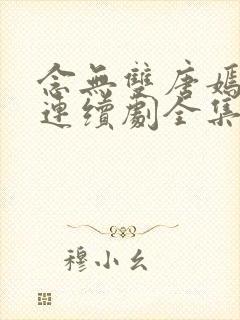 念無雙唐嫣
連續劇全集
穆小幺